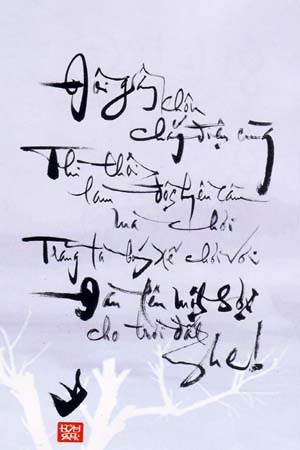 Đôi giây khôn
chắp điệu cung
Thì thôi
làm độc huyền cầm
mà chơi
Trăng tà bóng xế chơi vơi
Đàn lên một sợi
cho trời đất
nghe!